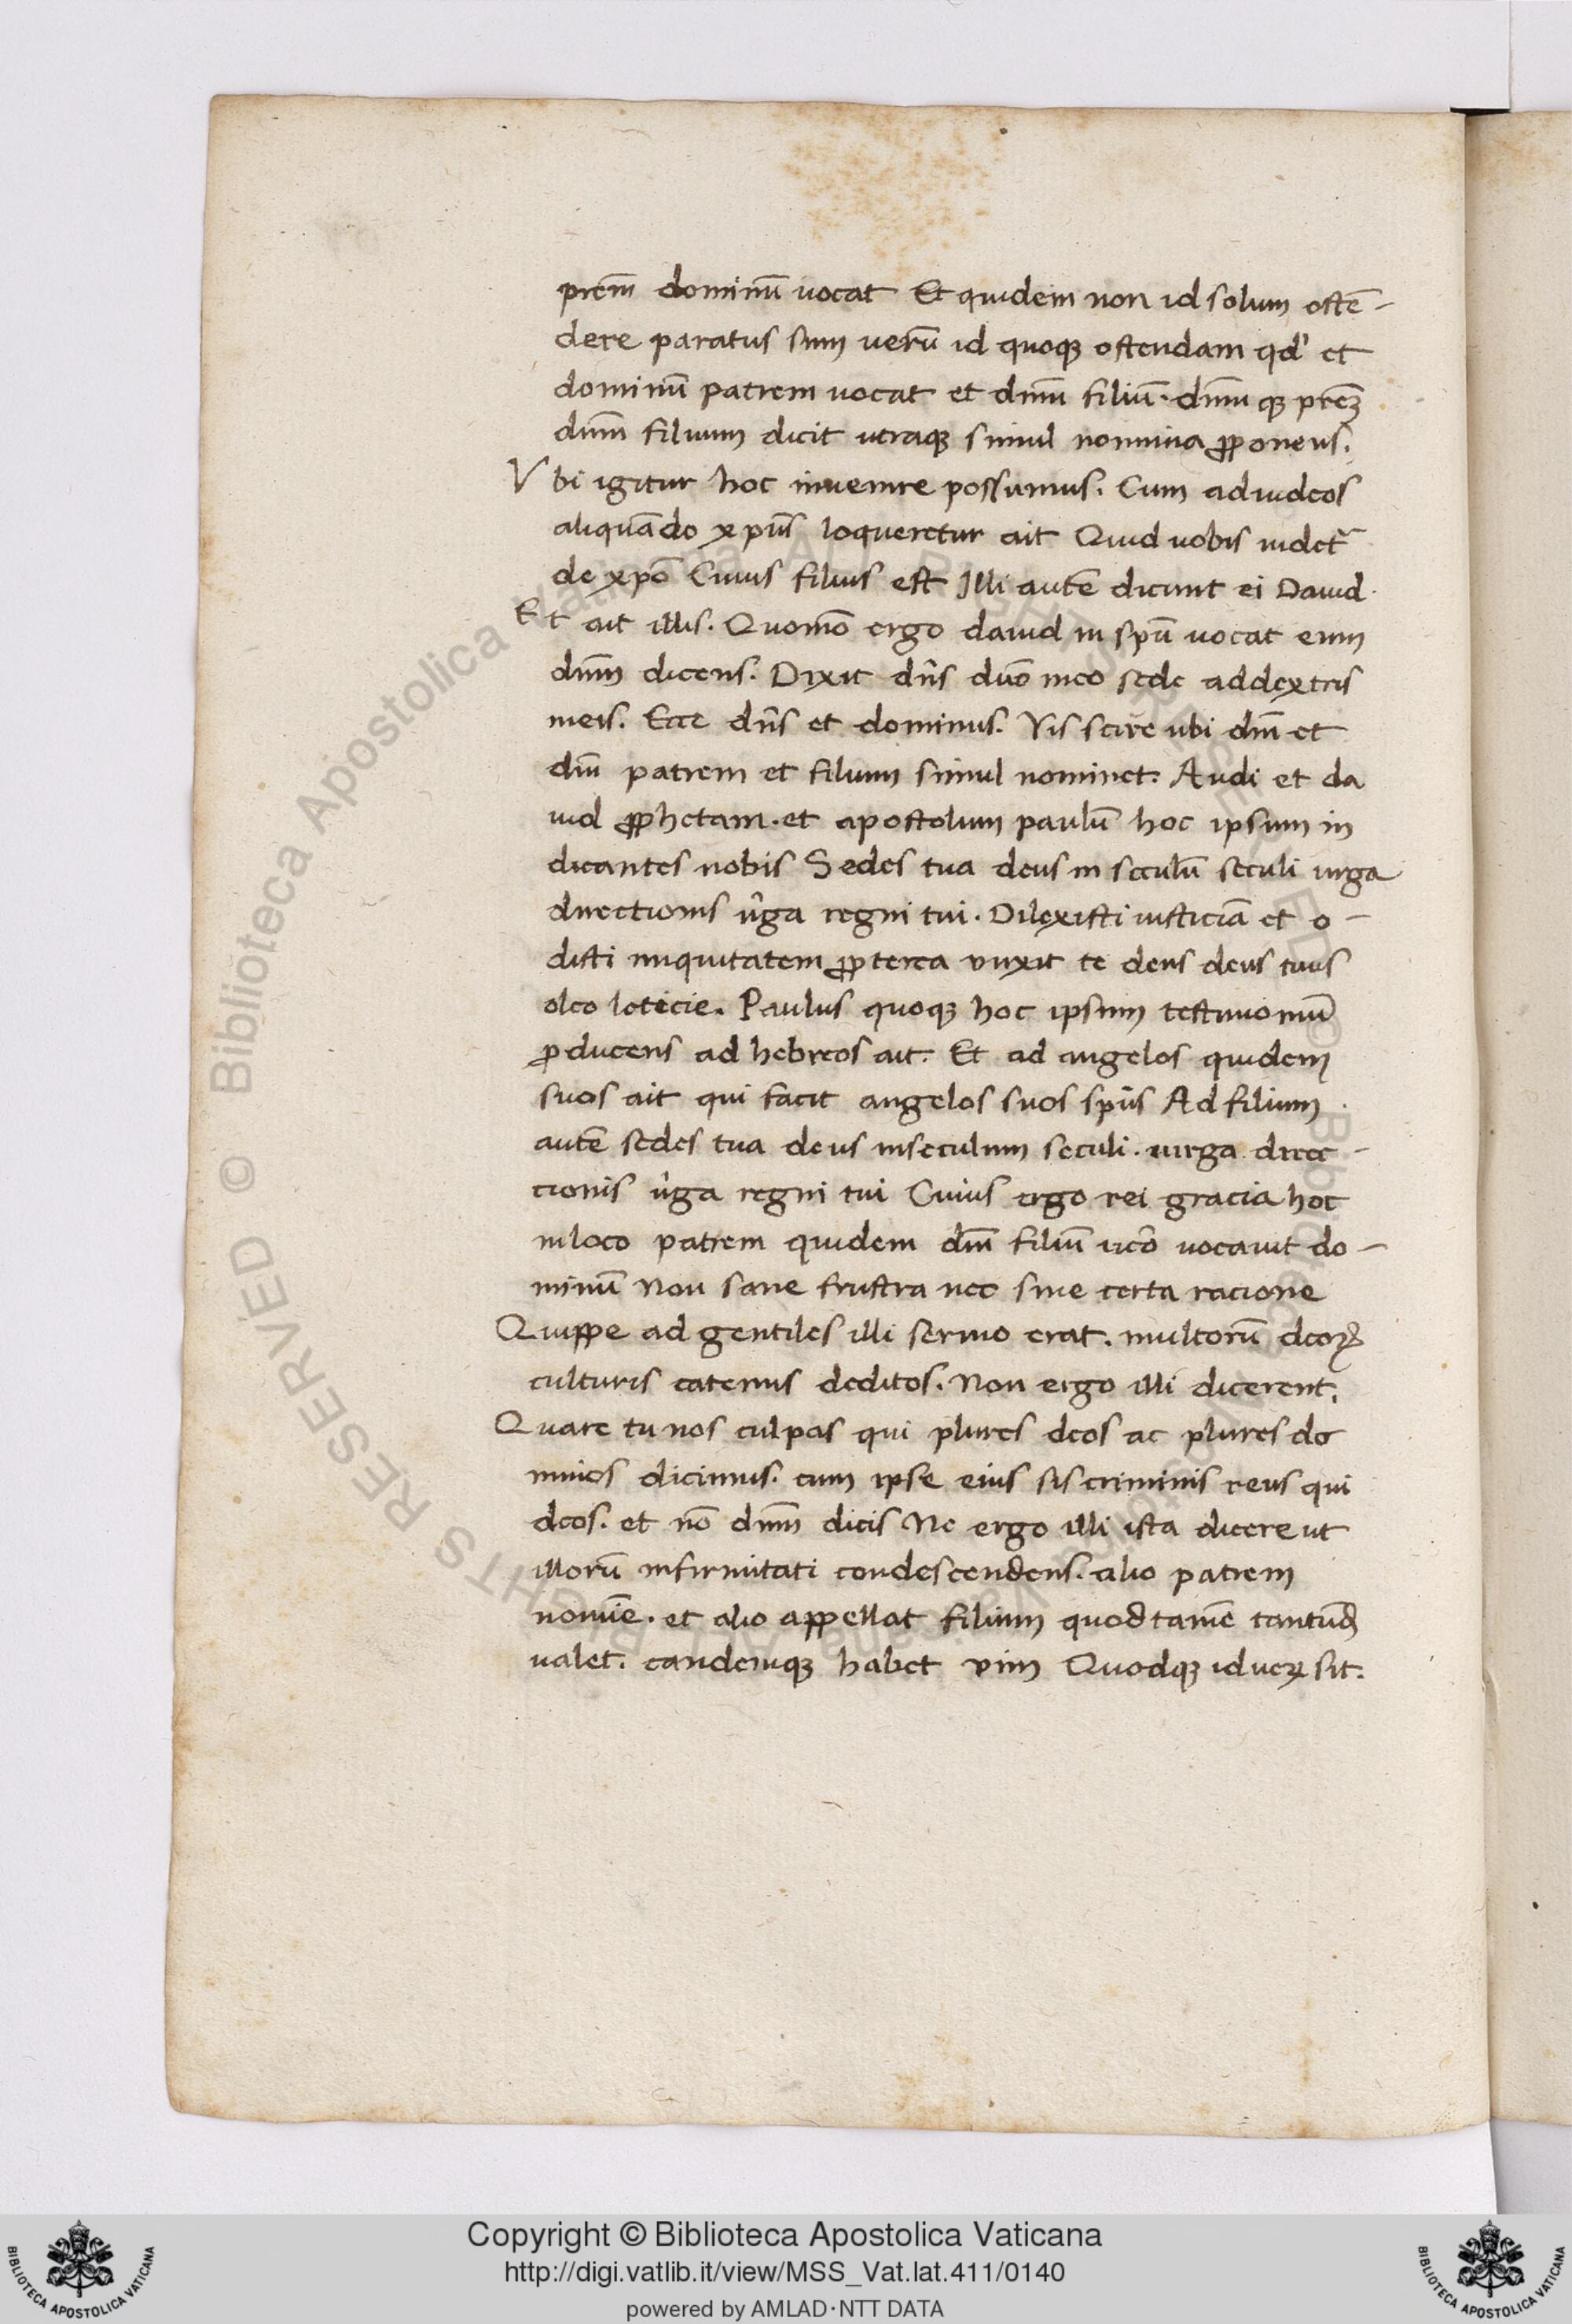 prem̄ dominū uocat Et quidem non id solum ostē-
dere paratus sum uerū id quoqꝫ ostendam qd' et
dominū patrem uocat et dnm̄ filiū. dnm̄ qꝫ prēꝫ
dnm̄ filium dicit utraqꝫ simul nomina ꝓponens.
Vbi igitur hoc inuenire possumus. Cum adiudeos
aliquādo xpūs loqueretur ait Quid uobis uidet̄
de xpō Cuius filius est Illi autē dicunt ei Dauid.
Et ait illis. Quomō ergo dauid in spū uocat eum
dnm̄ dicens. Dixit dn̄s dnō meo sede addextris
meis. Ecce dn̄s et dominus. Vis scire ubi dm̄ et
dm̄ patrem et filium simul nominet. Audi et da
uid ꝓphetam. et apostolum paulū hoc ipsum in
dicantes nobis Sedes tua deus in seculū seculi uirga
directionis ûga regni tui. Dilexisti iusticiā et o-
disti iniquitatem ꝓpterea vnxit te deus deus tuus
oleo leticie. Paulus quoqꝫ hoc ipsum testimoniū
ꝓducens ad hebreos ait. Et ad angelos quidem
suos ait qui facit angelos suos spūs Ad filium
autē sedes tua deus inseculum seculi. uirga direc-
cionis ûga regni tui Cuius ergo rei gracia hoc
inloco patrem quidem dm̄ filiū ucrō uocauit do-
minū Non sane frustra nec sine certa racione
Quippe ad gentiles illi sermo erat. multorū deoꝝ
culturis catenus deditos. Non ergo illi dicerent.
Quare tu nos culpas qui plures deos ac plures do
minos dicimus. cum ipse eius sis criminis reus qui
deos. et nō dnm̄ dicis Ne ergo illi ista dicere ut
illorū infirmitati condescendens. alio patrem
nomīe. et alio appellat filium quod tamē tantūd
ualet. eandemqꝫ habet vim Quodqꝫ id ueꝝ sit.
Copyright © Biblioteca Apostolica Vaticana
http://digi.vatlib.it/view/MSS_Vat.lat.411/0140
powered by AMLAD·NTT DATA